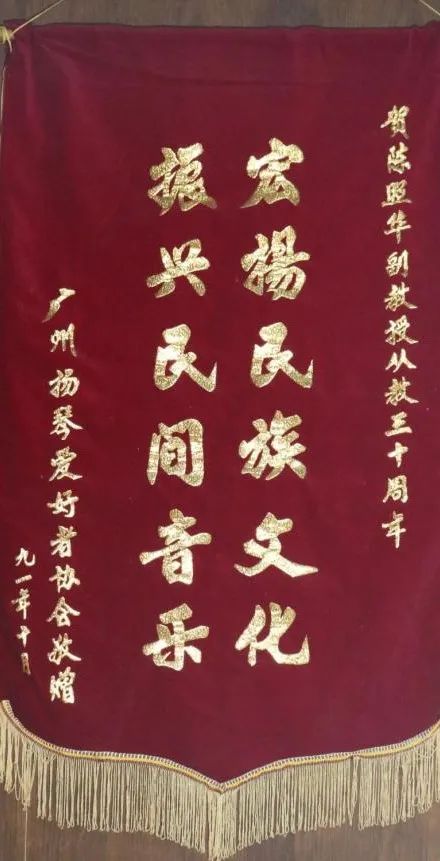 贺陈照华副教授从教三十周年
宏揚民族文化
振兴民间音乐
广州扬琴爱好者协会敬赠
九一年十月